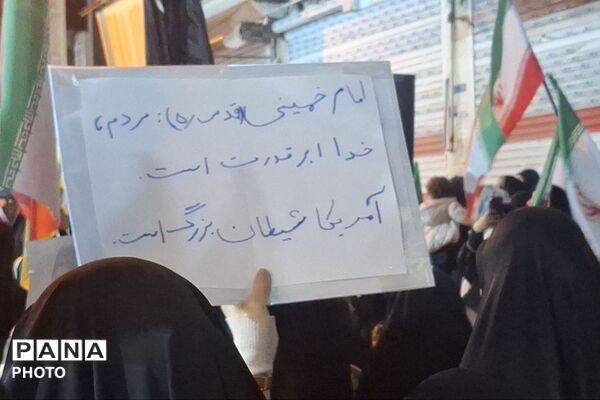 امام خمینی (قدس ره): مردم،
خدا ابرقدرت است.
آمریکا شیطان بزرگ است.
PANA
PHOTO